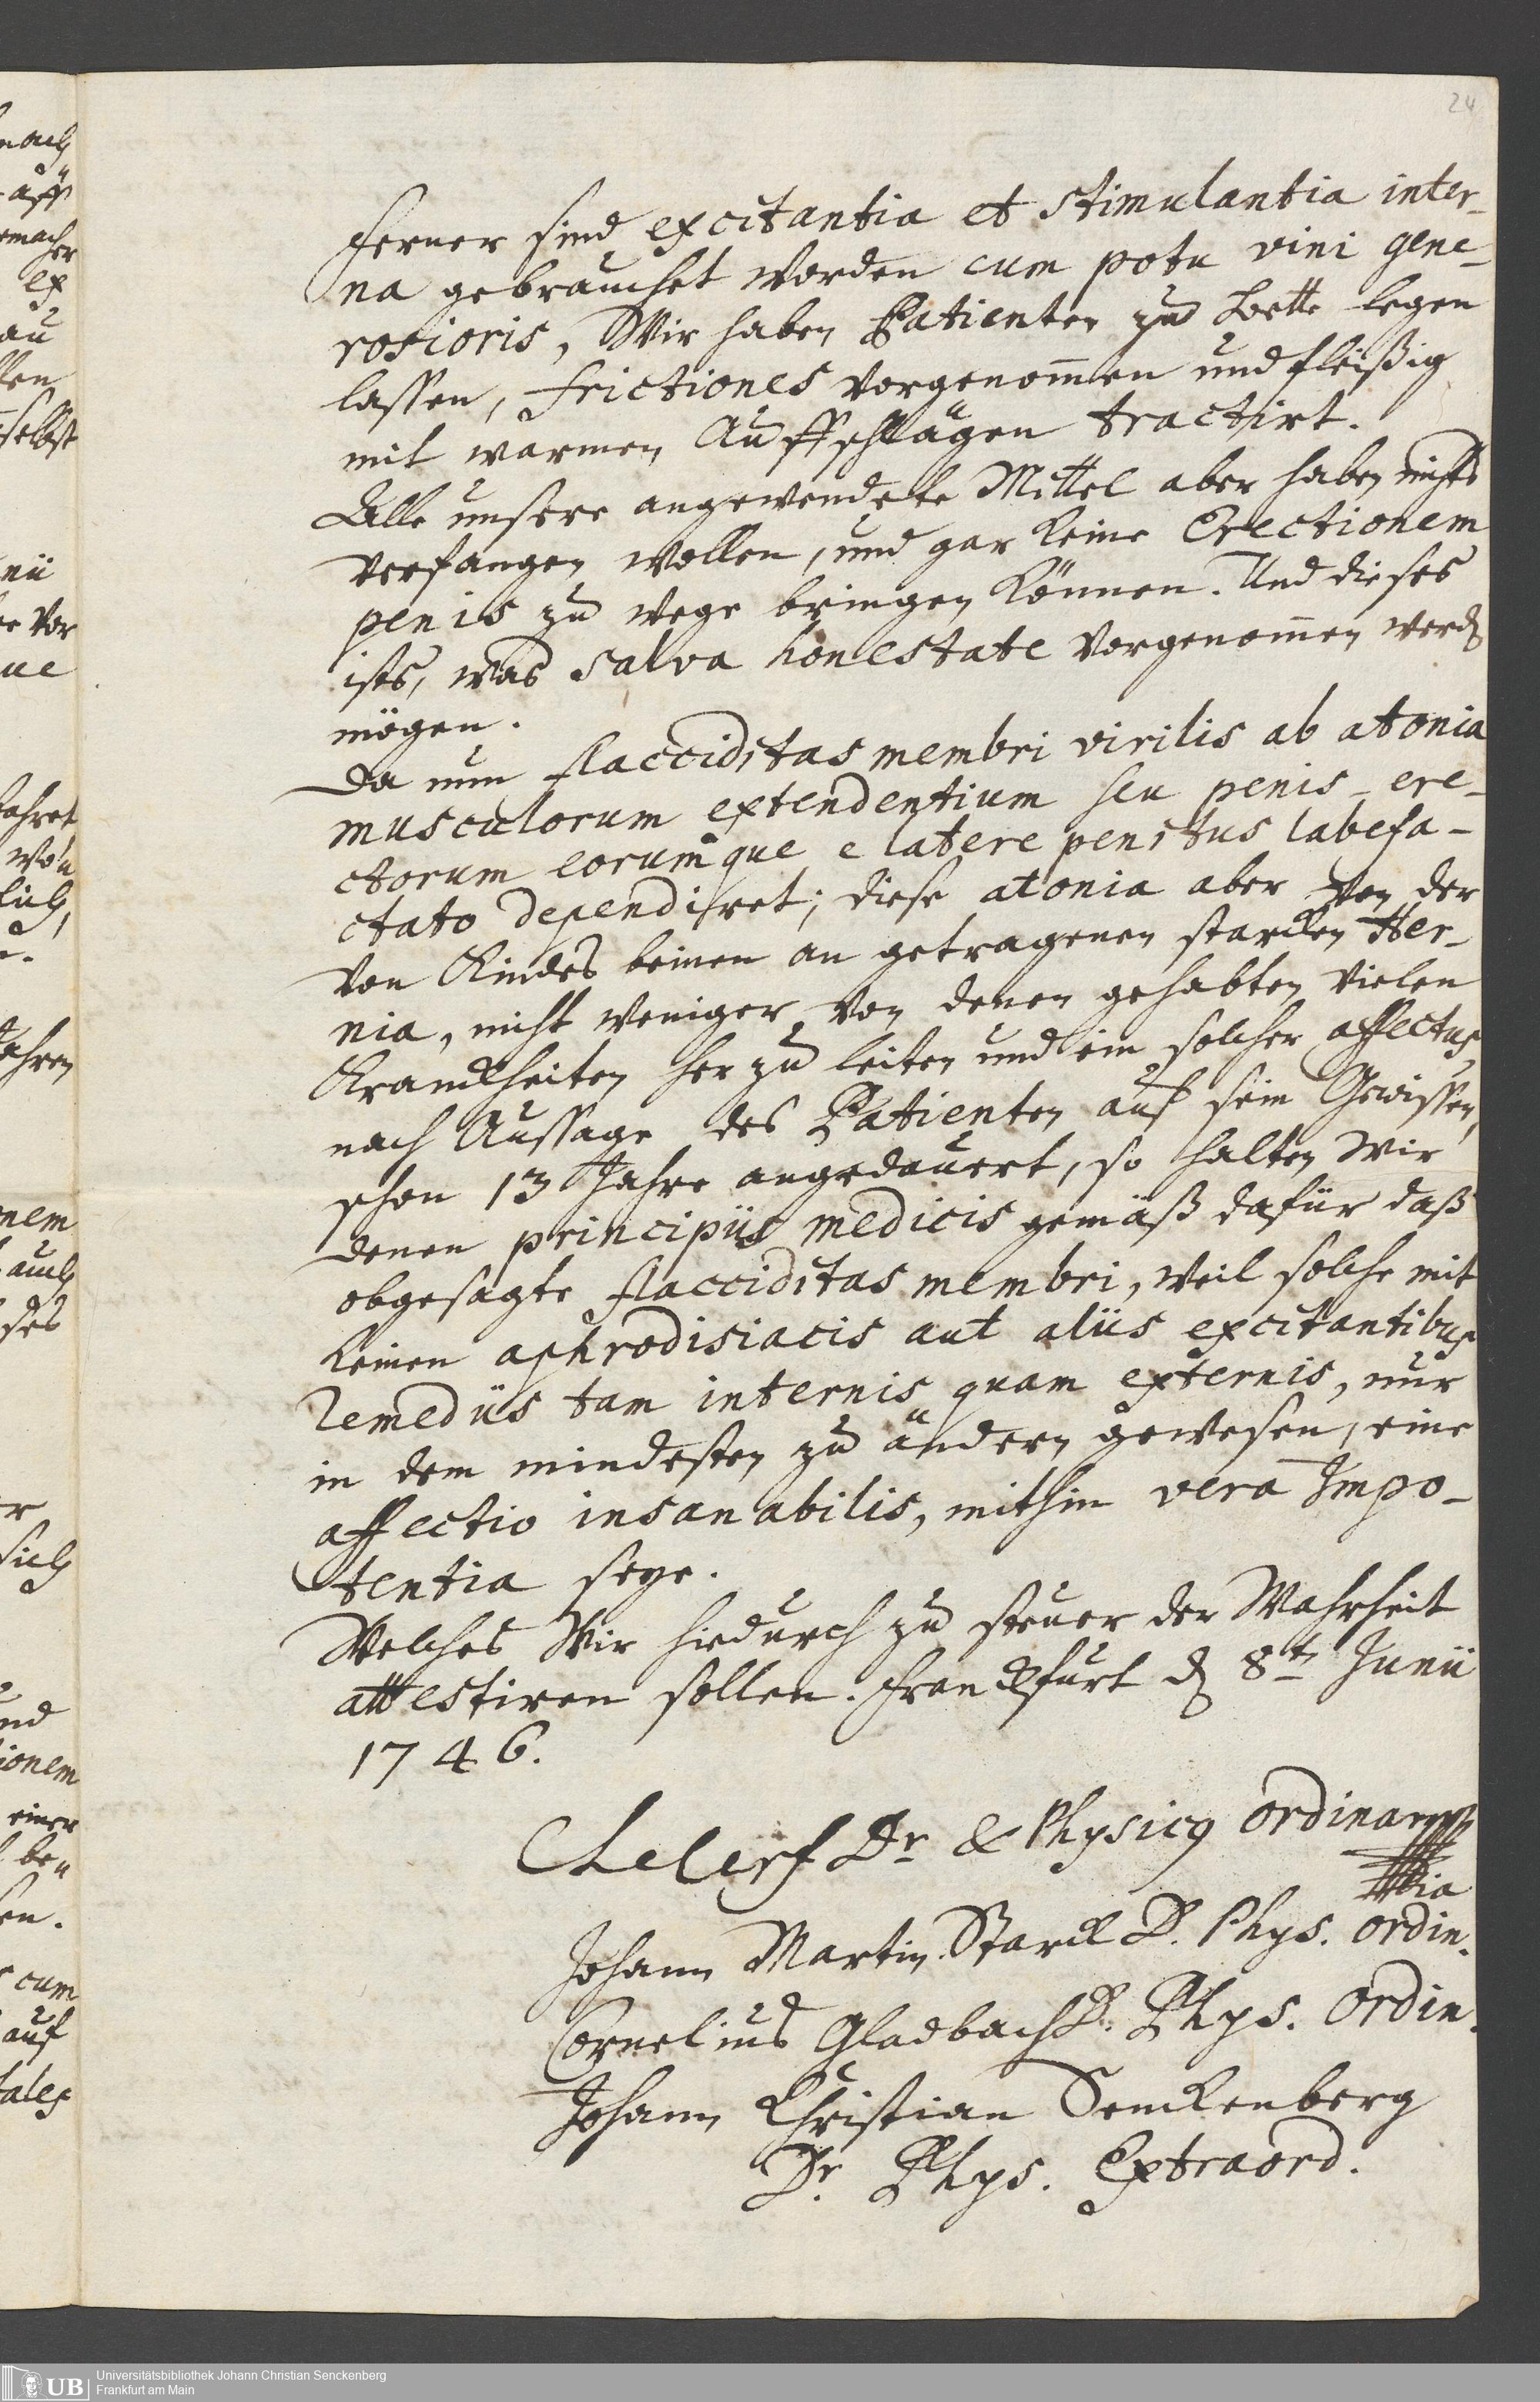 24
ferner sind excitantia et stimulantia inter-
na gebrauchet worden cum potu vini gene-
rosioris, Wir haben Patienten zu bette legen
lassen, frictiones vorgenom̄en und fleißig
mit warmen Auffschlägen tractirt.
Alle unsere angewendete Mittel aber haben nichts
verfangen wollen, und gar keine Erectionem
penis zu wege bringen können. Und dieses
ists, was salva honestate vorgenom̄en werden
mögen.
Da nun flacciditas membri virilis ab atonia
musculorum extendentium seu penis-ere-
ctorum eorumque elatere penitus labefa-
ctato dependiret; diese atonia aber von der
von Kindes beinen an getragenen starcken Her-
nia, nicht weniger von denen gehabten vielen
Kranckheiten her zu leiten und ein solcher affectus,
nach Aussage des Patienten auf sein Gewissen,
schon 13 Jahre angedauert, so halten Wir
denen principiis medicis gemäß dafür daß
obgesagte flacciditas membri, weil solche mit
keinen aphrodisiacis aut aliis excitantibus
remediis tam internis quam externis, nur
in dem mindesten zu ändern gewesen, eine
affectio insanabilis, mithin vera Impo-
tentia seye.
Welches Wir hiedurch zu steuer der Wahrheit
attestiren sollen. Franckfurt d 8t Junii
1746.
Dr & Physicq ordinari
Johann Martin Starck D. Phys. ordin.
Cornelius Gladbach D. Phys. Ordin.
Johann Christian Senckenberg
Dr. Phys. Extraord.
UB
Universitätsbibliothek Johann Christian Senckenberg
Frankfurt am Main